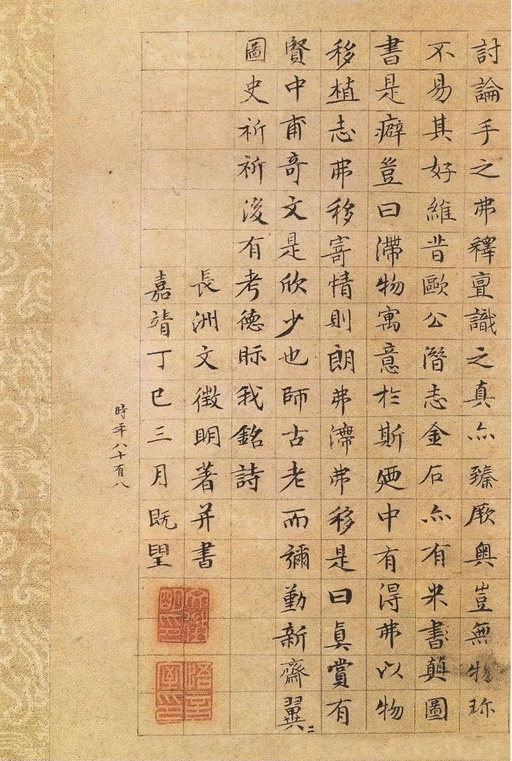 討論手之弗釋亶識之真亦臻厥奧豈無物珍
不易其好維昔歐公潛志金石亦有米書顛圖
書是癖豈曰滯物寓意於斯廼中有得弗以物
移植志弗移寄情則朗弗滯弗移是曰眞賞有
賢中甫奇文是欣少也師古老而彌勤新齋翼〻
圖史祈祈後有考德眎我銘詩
長洲文徵明著并書
嘉靖丁巳三月既朢
時年八十有八
文徵明印
悟言室印